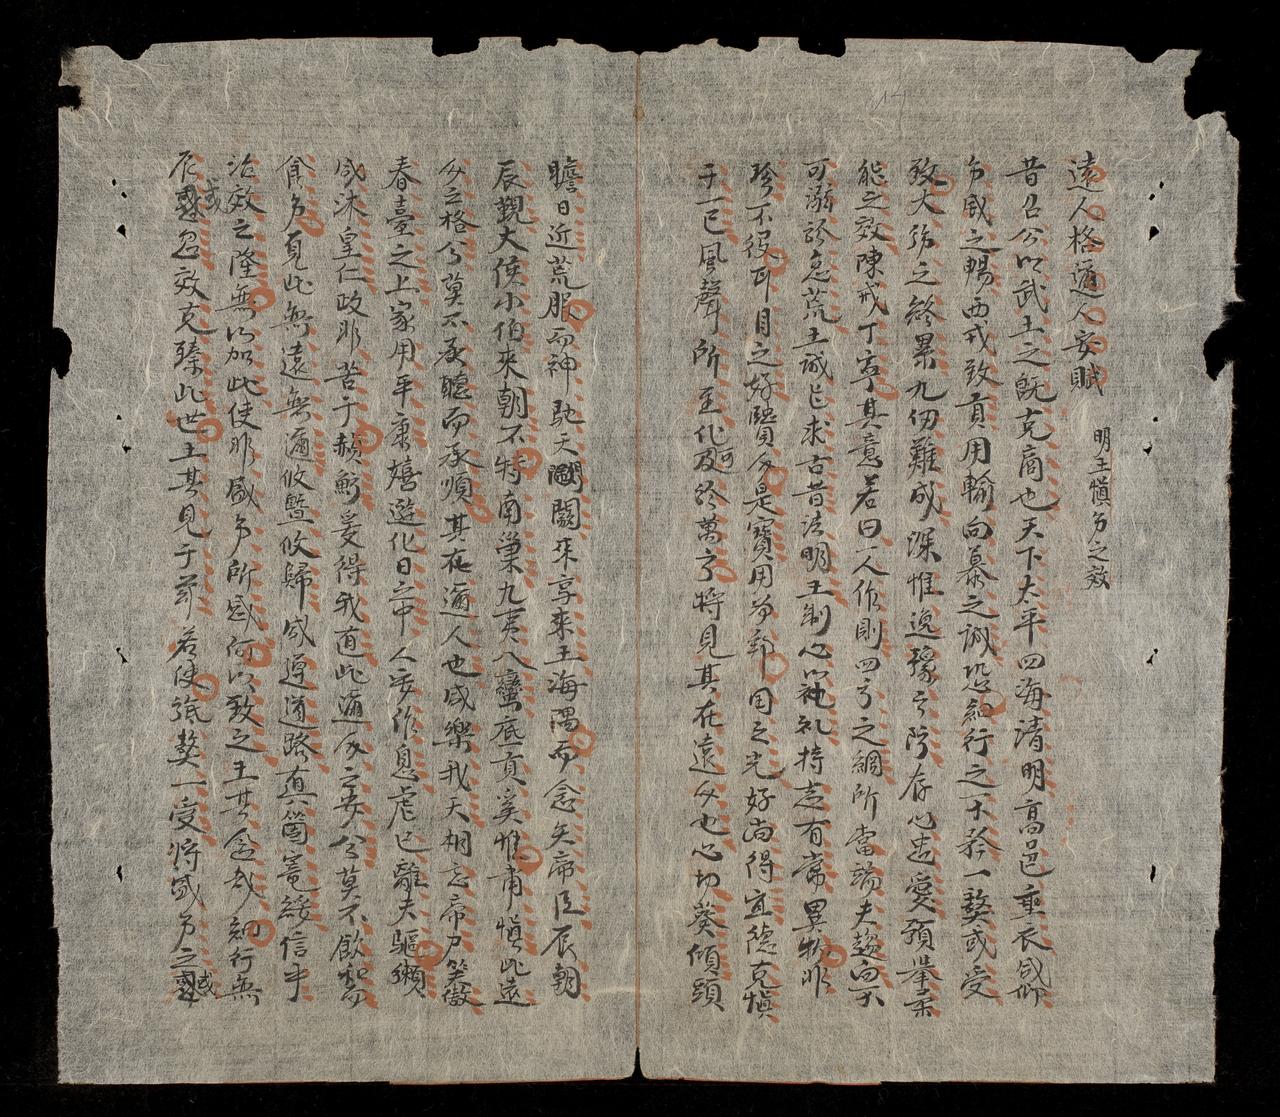 遠人格邇人安賦 明王慎夛之效
昔召公以武王之既克商也天下太平四海清明高邑垂衣咸仰
夛咸之暢西戎致貢用輸向慕之誠恐細行之不矜一獒或受
致大夛之終累九仞難成深惟逸豫之防存心忠愛預舉柔
能之效陳戒丁寧其意若曰一人作則四方之綱所當端夫趨向不
可溺於怠荒王誠心求古昔法明王制心以礼持志有常異物非
珍不役耳目之好賢人是寶用為邦国之光好尚得宜德克慎
于一己風聲所至化可及於萬方将見其在遠人也心切葵傾頭
瞻日近荒服而神馳天闕闕来享来王海隅而念矢帝臣辰朝
辰覲大侯小伯来朝不特南巢九夷八蠻底貢奚惟甫慎此遠
人之格兮莫不承聽而承順其在邇人也咸樂我天相忘帝力笑傲
春臺之上家用平康嬉遊化日之中人安作息虐已離夫驅獺
咸沐皇仁政非苦于赪魴爰得我有此邇人之安兮莫不飲和而
食夛覓此無遠無邇攸塈攸歸咸遵道路直筐篚綏信乎
治效之隆無以加此使非咸夛所感何以致之王其念哉細行無
辰或忽效克臻此世王其見于茲若使旅獒一受将咸夛之或